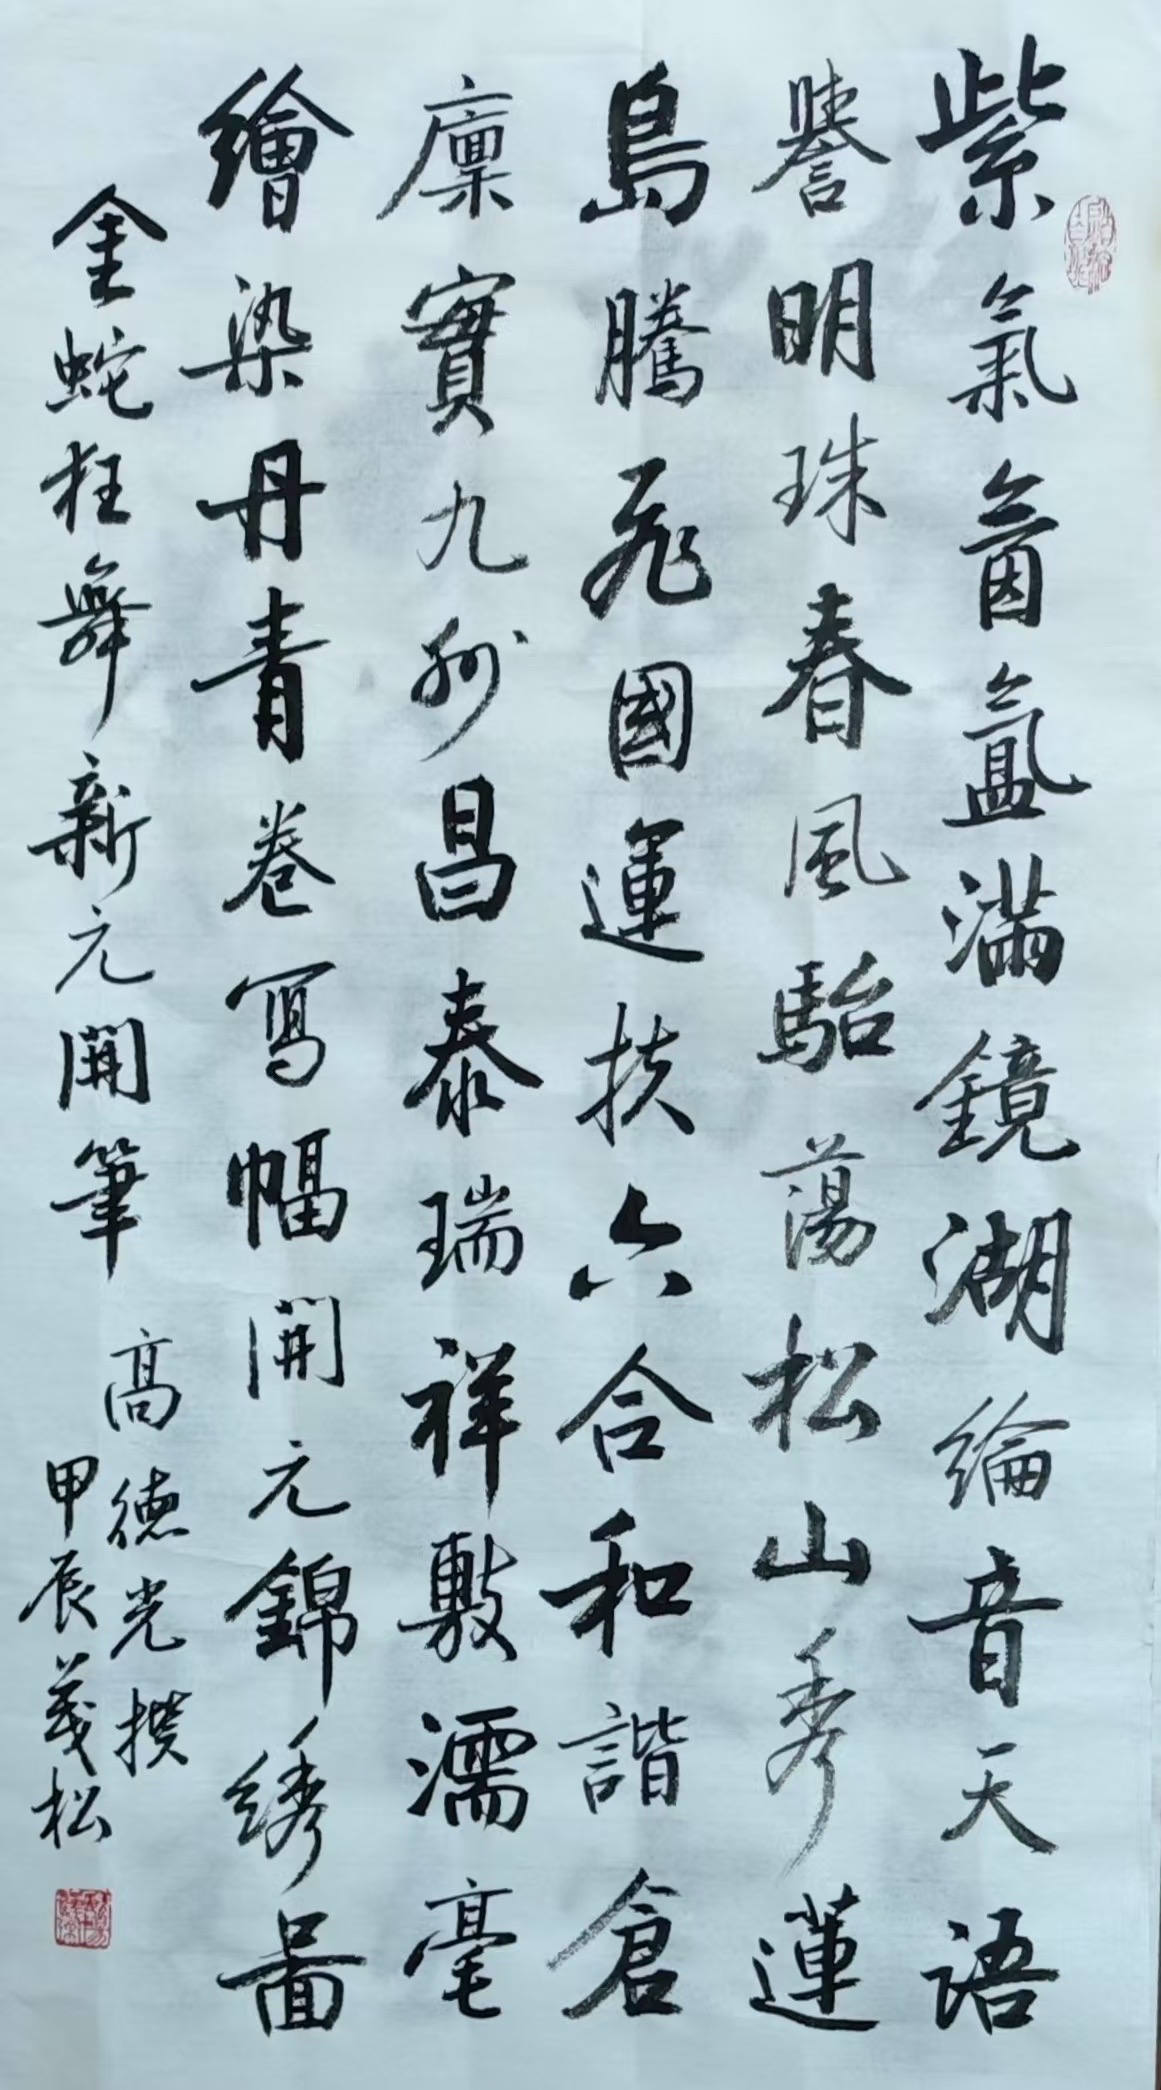 紫氣氤氳满鏡湖綸音天语
譽明珠春風駘蕩松山秀蓮
島騰飛國運扶六合和諧倉
廪實九州昌泰瑞祥敷濡毫
繪染丹青卷寫幅開元錦绣啚
金蛇狂舞新元開筆
高德光撰
甲辰義松